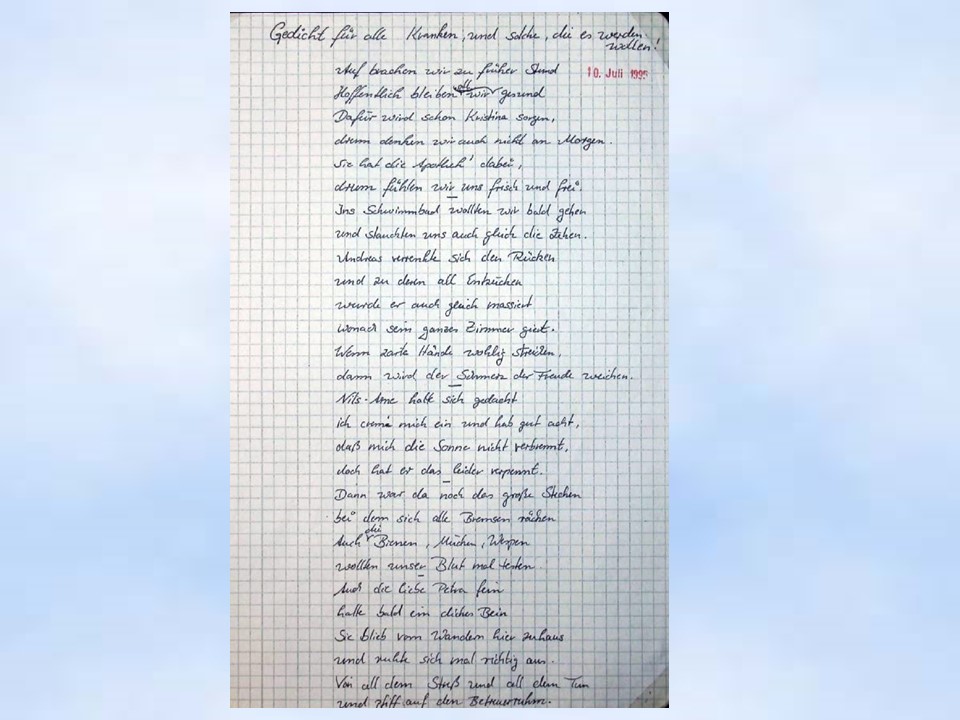 Gedicht für alle Kranken, und solche, die es werden
wollen!
10. Juli 1995
Auf brachen wir zu früher Stund
Hoffentlich bleiben wir all gesund
Dafür wird schon Kristina sorgen,
drum denken wir auch nicht an Morgen.
Sie hat die Apothek' dabei,
drum fühlen wir uns frisch und frei.
Ins Schwimmbad wollten wir bald gehen
und stauchten uns auch gleich die Zehen.
Andreas verrenkte sich den Rücken
und zu deren all Entzücken
wurde er auch gleich massiert
wonach sein ganzes Zimmer giert.
Wenn zarte Hände wohlig streichen,
dann wird der Schmerz der Freude weichen.
Nils-Arne hatte sich gedacht
ich creme mich ein und hab gut acht,
daß mich die Sonne nicht verbrennt,
doch hat er das leider verpennt.
Dann war da noch das große Stechen
bei dem sich alle Bremsen rächen
Auch die Bienen, Mücken, Wespen
wollten unser Blut mal testen
Auch die liebe Petra fein
hatte bald ein dickes Bein
Sie blieb vom Wandern hier zuhaus
und ruhte sich mal richtig aus.
Von all dem Streß und all dem Tun
und pfiff auf den Betreuerruhm.